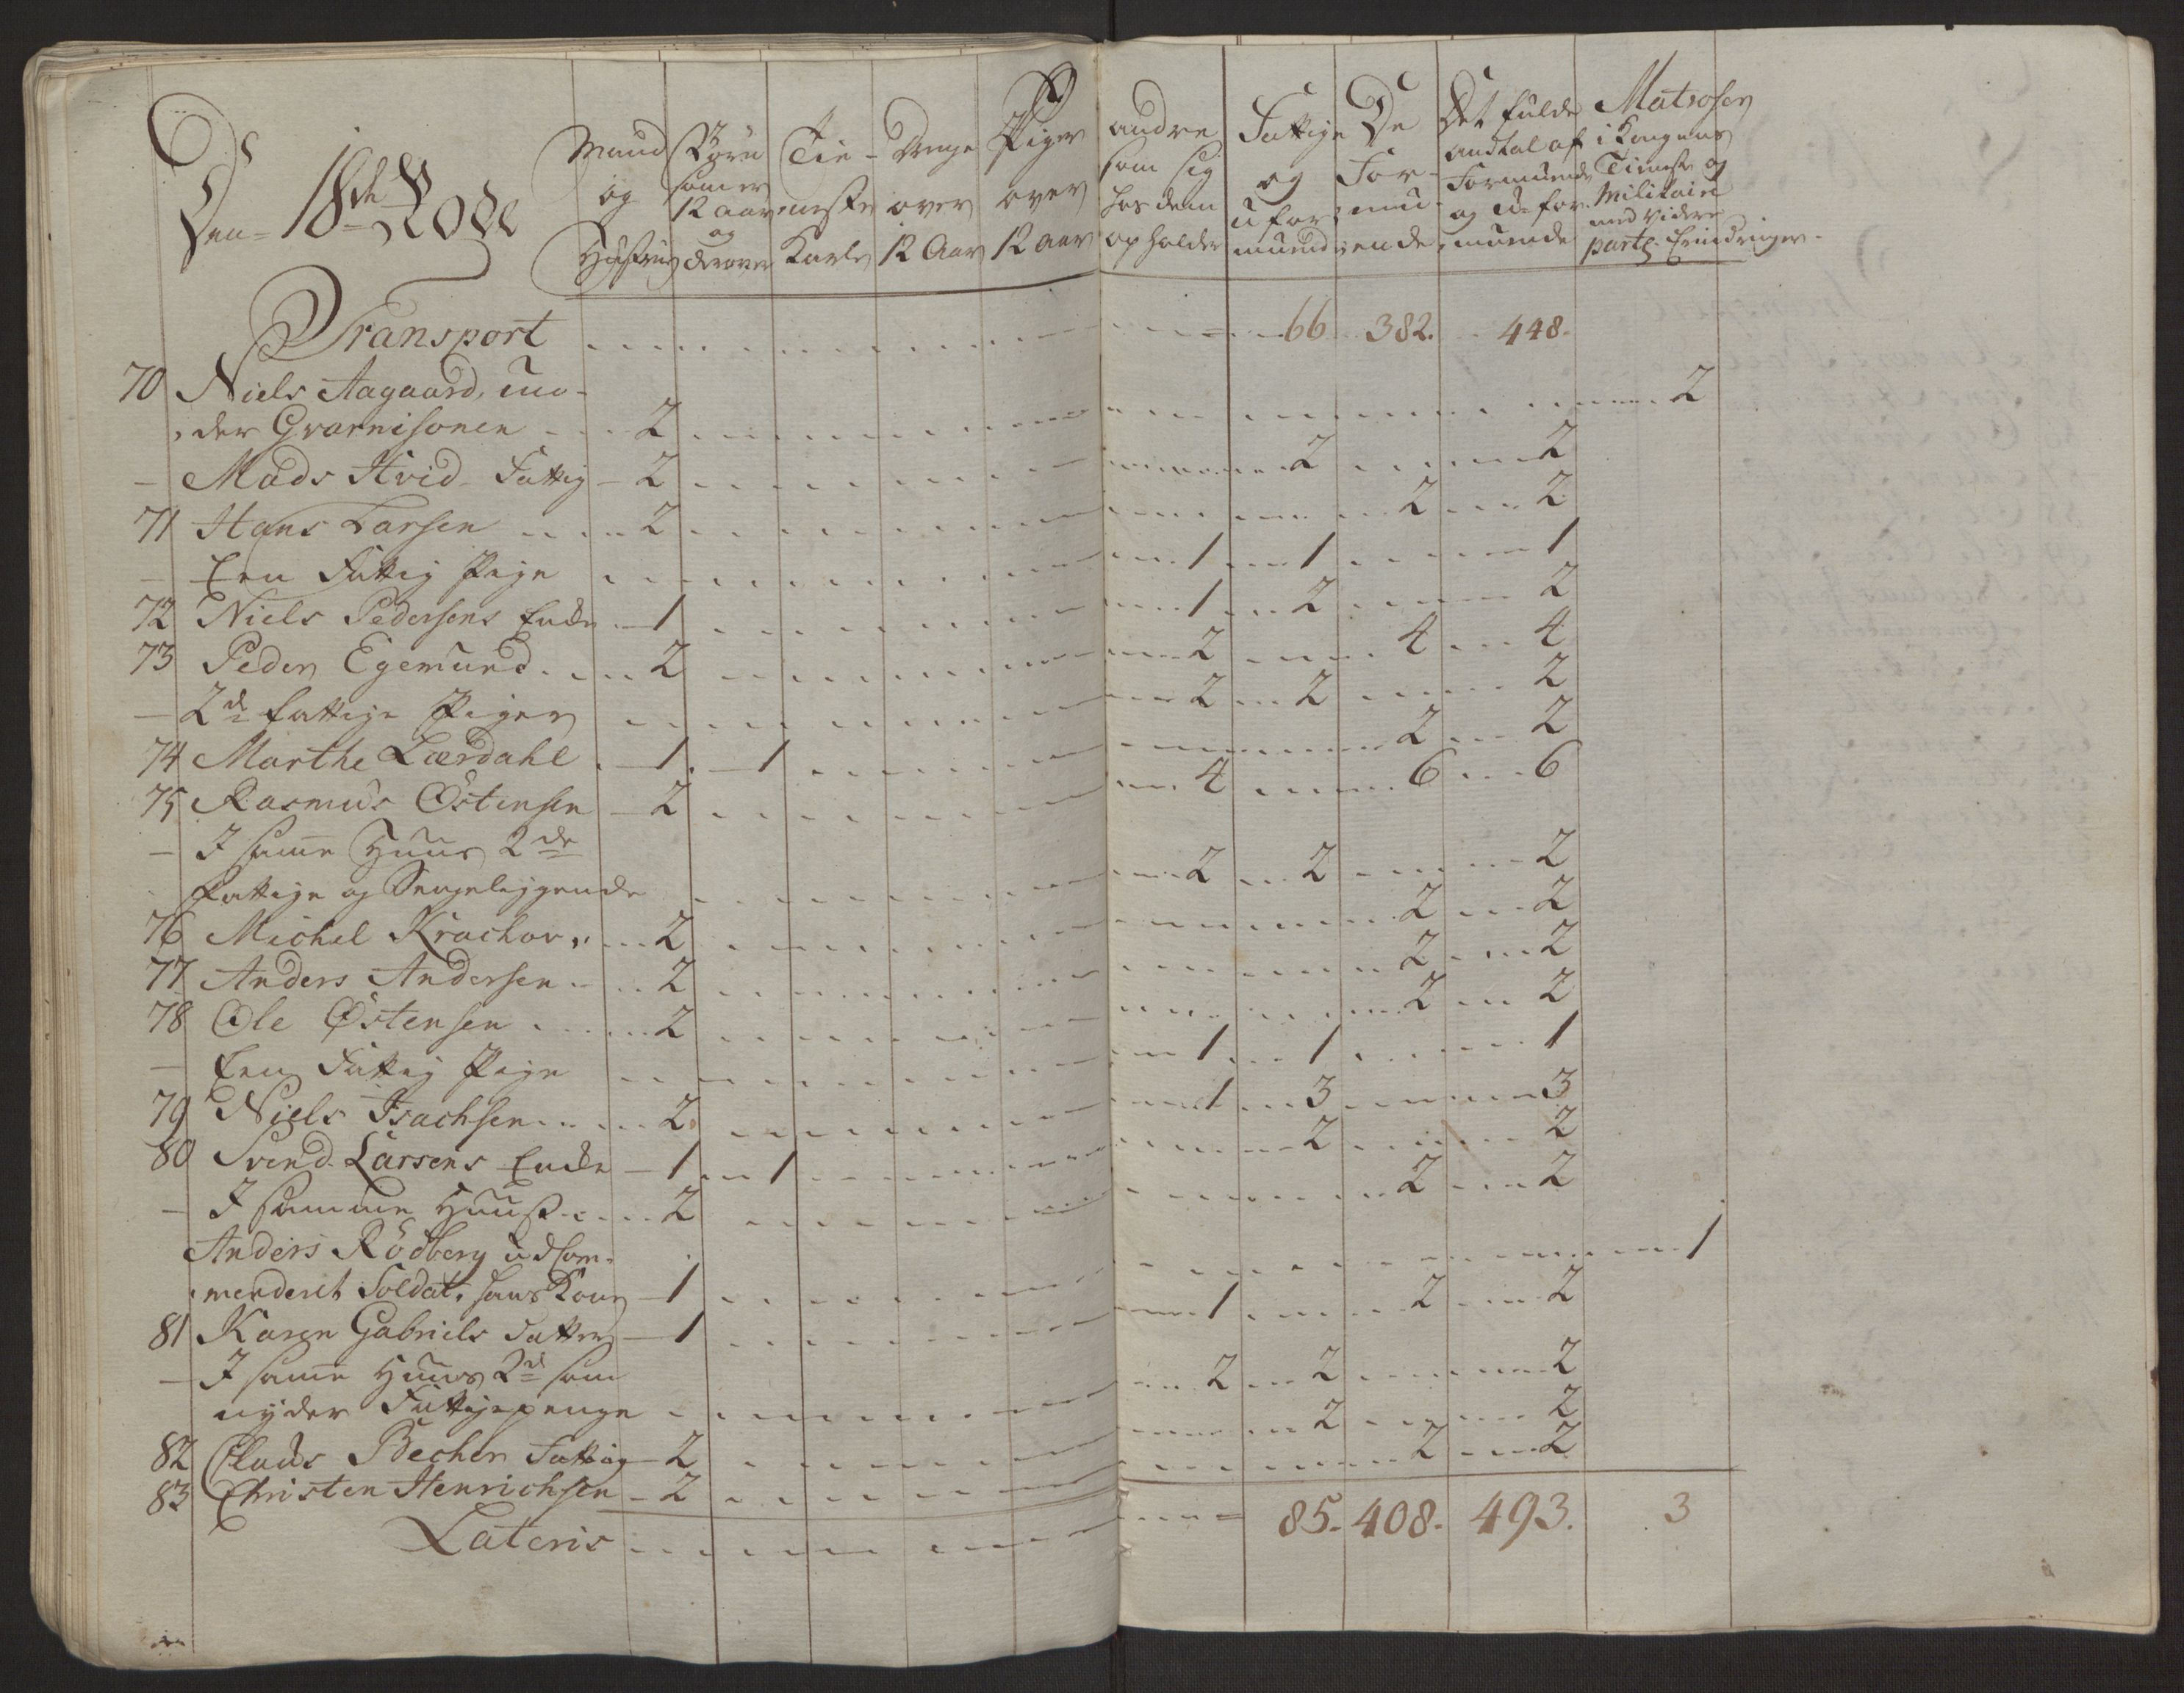 Den 18de Rode
Mand og Hustrue
Börn som er 12 aar og derover
Tieneste Karle
Drenge over 12 Aar
Piger over 12 aar
andre som sig hos dem opholder
Fattige og ufor muende
De For muende
Det fulde andtal af Formuende og U for muende
Matroser i Kongens Tieneste og Militair med videre parts Erindringer
Transport 66 382. 448.
70 Niels Aagaard, un-
der Gvarnisonen 2 2
Mads Hvid Fattig 2 2 2
71 Hans Larsen 2 2 2
Een Fattig Pige 1 1 1
72 Niels Pedersens Enke 1 1 2 2
73 Peder Egemund 2 2 4 4
2de fattige Piger 2 2 2
74 Marthe Lærdahl 1 1 2 2
75 Rasmus Østensen 2 4 6 6
I samme Huus 2de
fattige og Sengeliggende 2 2 2
76 Michel Krachov 2 2 2
77 Anders Andersen 2 2 2
78 Ole Østensen 2 2 2
Een Fattig Pige 1 1 1
79 Niels Isachsen 2 1 3 3
80 Svend Larsens Enke 1 1 2 2
I samme Huus 2 2 2
Anders Rödberg udCom-
menderet Soldat, hans Kone 1 1
81 Karen Gabriels Datter 1 1 2 2
I samme Huus 2de som
nyder Fattigepenge 2 2 2
82 Claus Becher Fattig 2 2 2
83 Christen Henrichsen 2 2 2
Lateris 85. 408. 493. 3